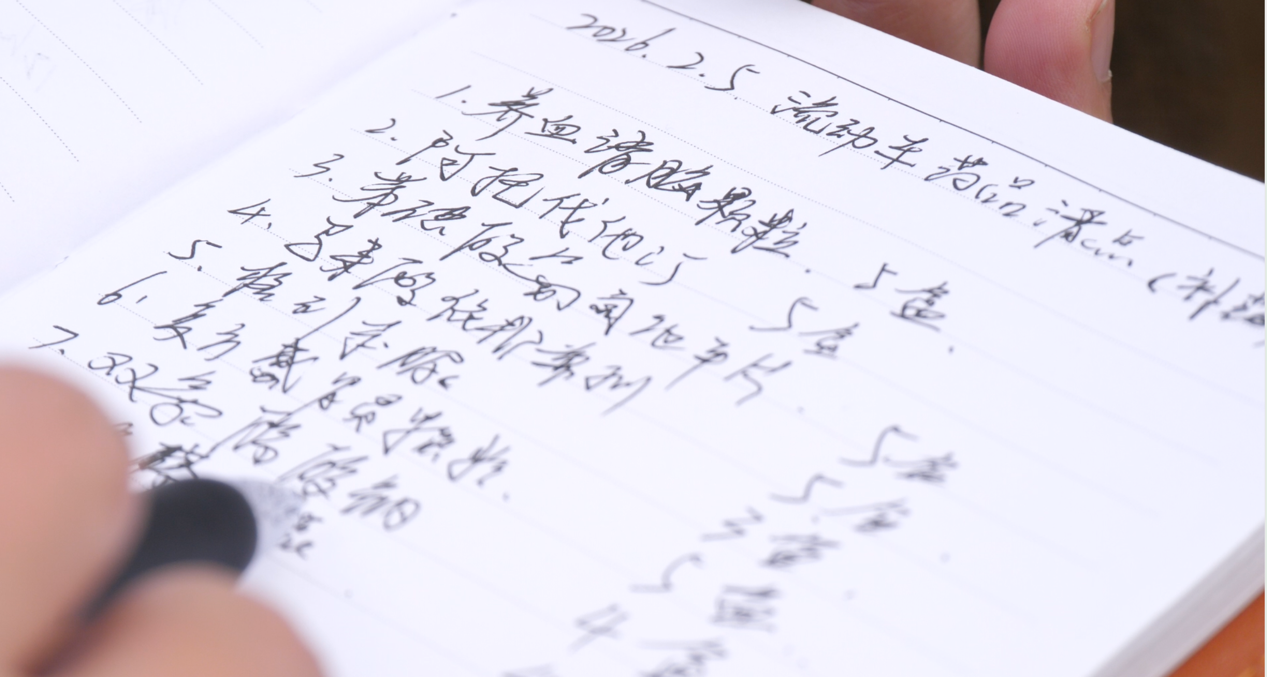 2026.2.5. 流动车药品清点(补
1. 养血清脑颗粒. 5盒.
2. 阿托伐他汀 5盒
3. 苯磺酸左旋氨氯地平片. 5盒
4. 马来酸依那普利 5盒
5. 格列美脲 3盒
6. 复方感冒颗粒. 5盒
7. 双氯芬酸钠 4盒